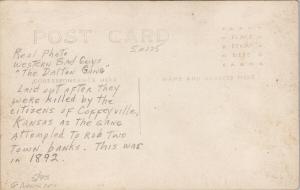 POST CARD
Real Photo
Western Bad Guys
"The Dalton Gang"
CORRESPONDENCE HERE
NAME AND ADDRESS HERE
Laid out after they
were killed by the
citizens of Coffeyville,
Kansas as the gang
attempted to rob two
town banks. This was
in 1892.